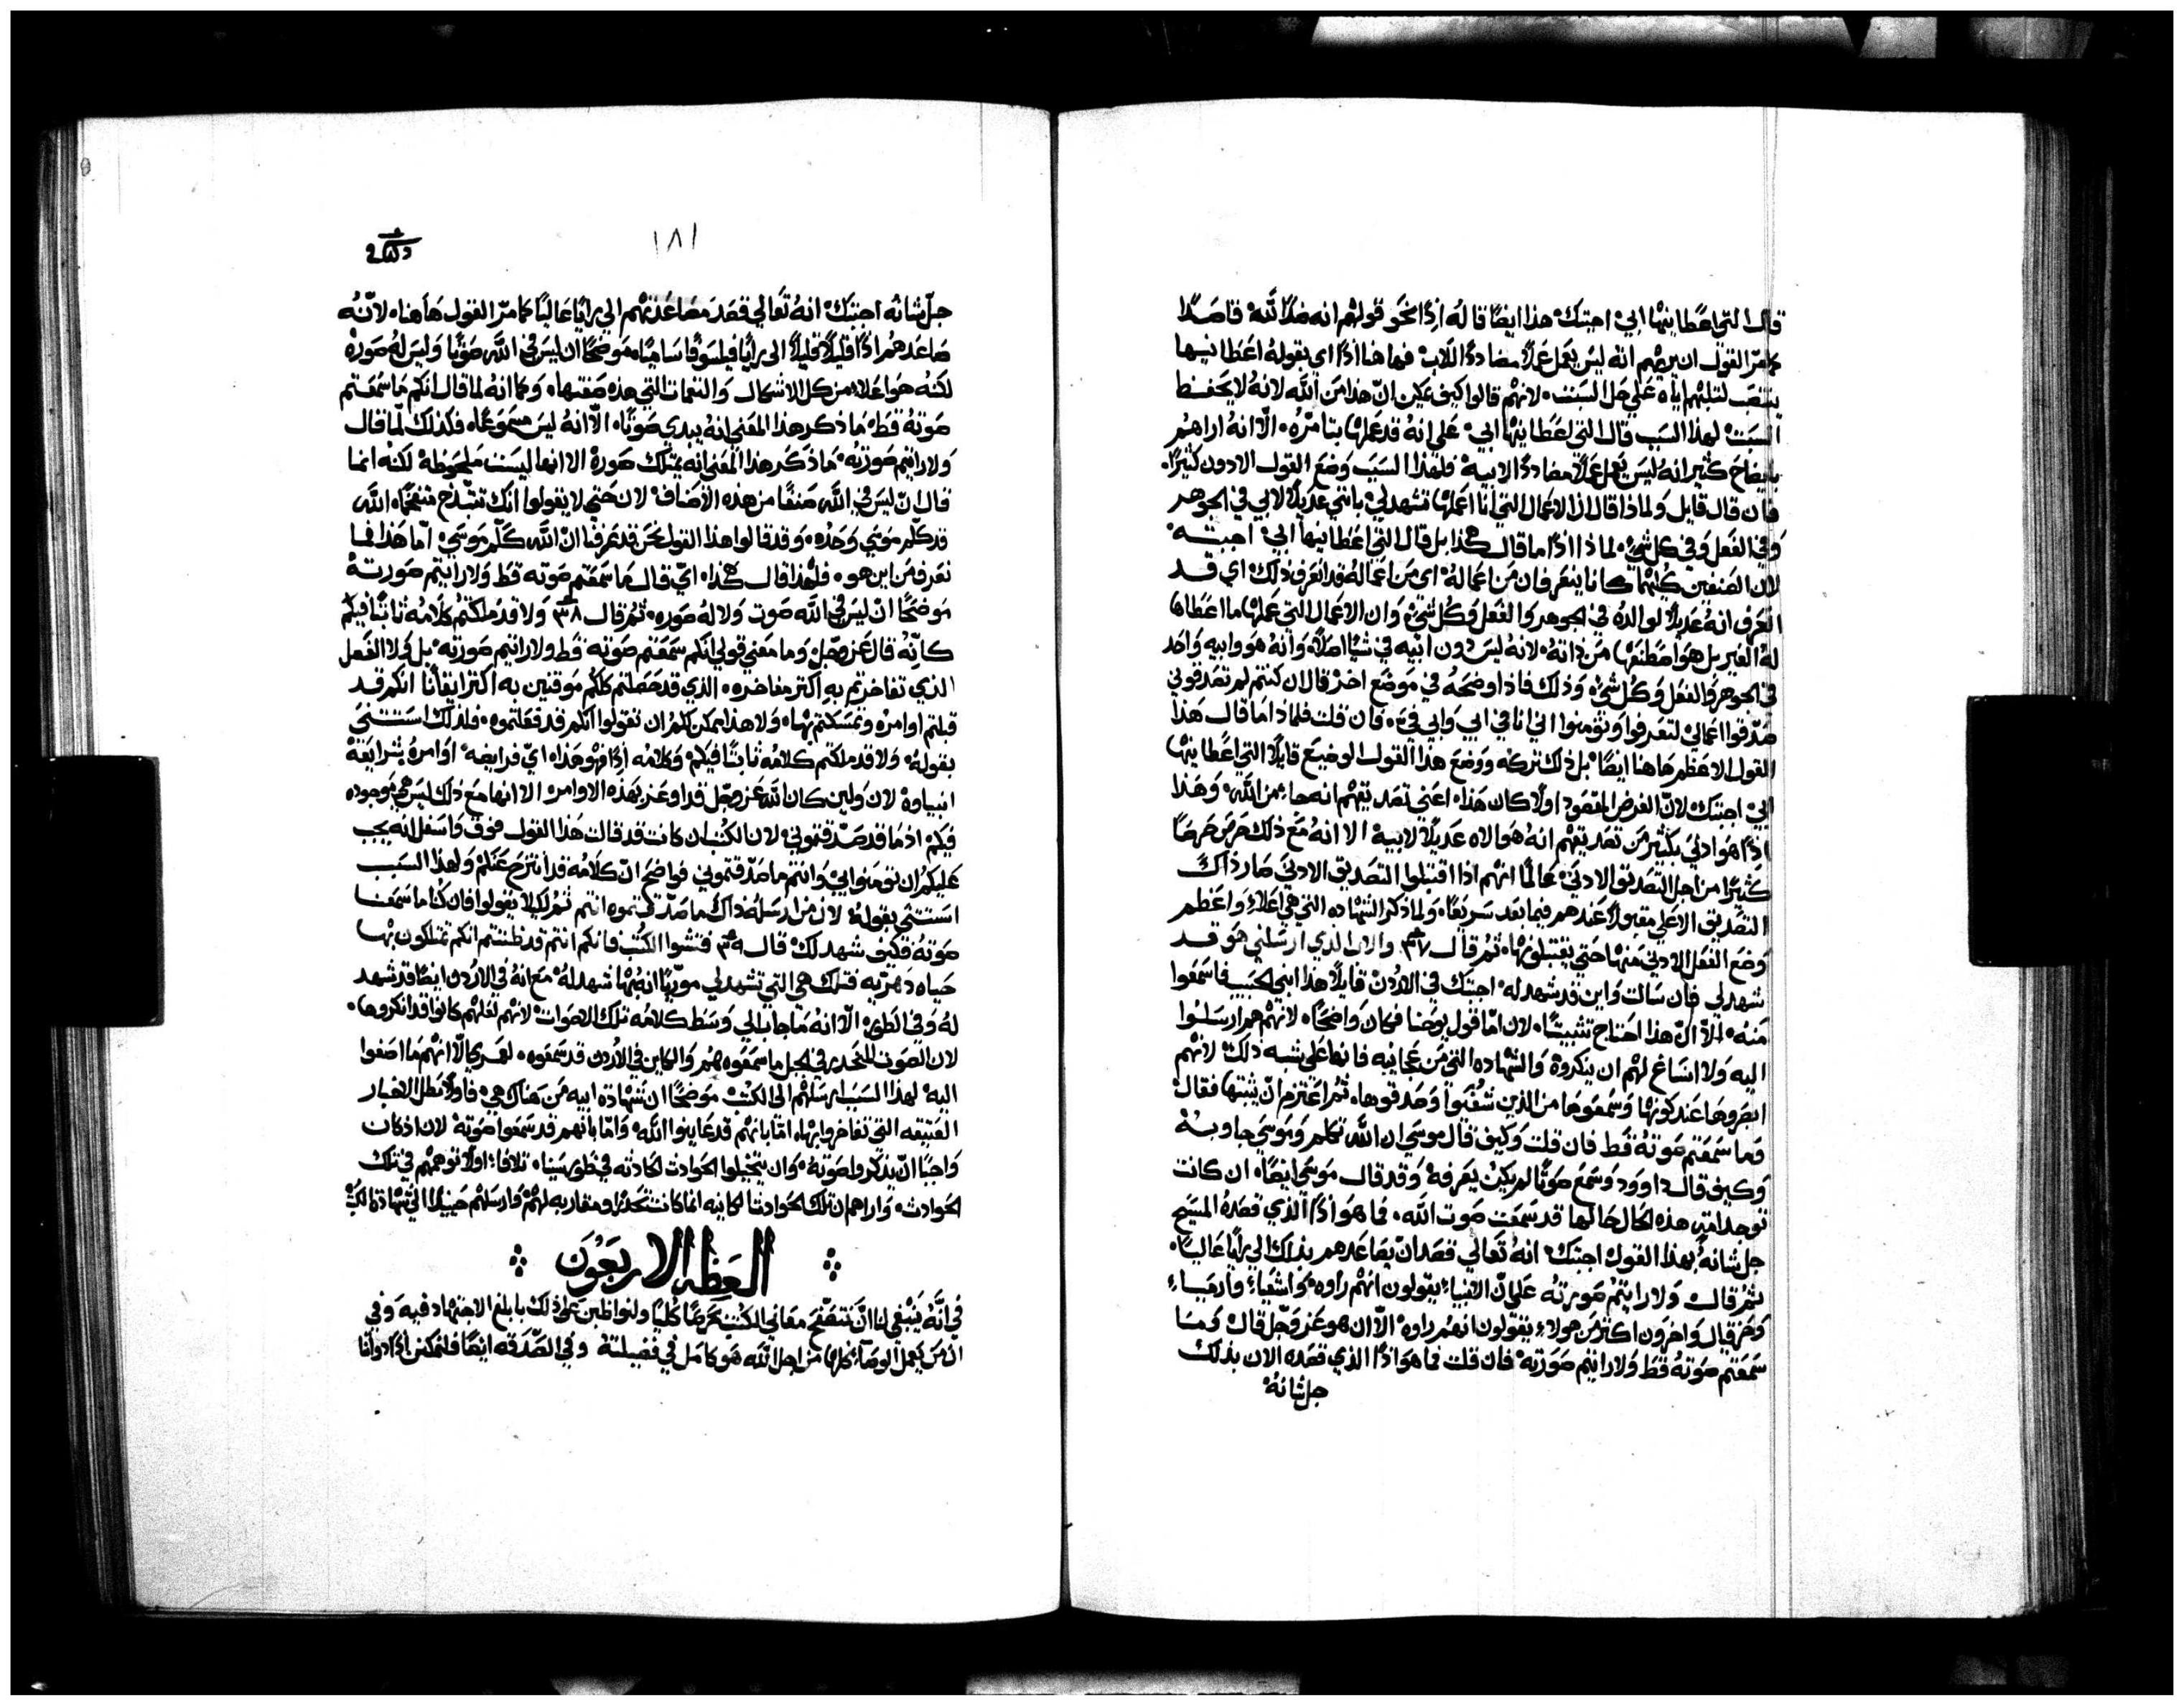 قال التي اعطانيها ابي اجبتك هذا ايضًا قاله اذًا نحو قولهم انه ضدًا لله قاصدًا
كما مرّ القول ان يريهم انه ليس يعمل عملًا مضادة اللاب فها هنا اذًا اي بقوله اعطانيها
ينتصب لثلبهم اياه علي حل السبت لانهم قالوا كيف يمكن انّ هذا من الله لانه لا يحفظ
السبت لهذا السبب قال التي اعطانيها ابي علي انه قد عملها بتامّره الّا انه اراهم
بايضاح كثير انه ليس يعمل عملًا مضادة الابيه فلهذا السبب وضع القول الادون كثيرًا
فان قال قايل ولماذا قال ان الاعمال التي انا اعملها تشهد لي بانني عديلًا لابي في الجوهر
وفي الفعل وفي كل شيء لماذا اذًا ما قال هكذا بل قال التي اعطانيها ابي اجبته
لان الصنفين كليهما كانا ينعرفان من اعماله اي من اعماله قد انعرف ذلك اي قد
انعرف انه عديلًا لوالده في الجوهر والفعل وكل شيء وان الاعمال التي عملها ما اعطاها
له الغير بل هو اصطنعها من ذاته لانه ليس دون ابيه في شيًا اصلًا وانه هو وابيه واحد
في الجوهر والفعل وكل شيء وذلك فاد اوضحه في موضع اخر قال ان كنتم لم تصدقوني
صدّقوا اعمالي لتعرفوا وتومنوا اني انا في ابي وابي فيّ فان قلت فلماذا ما قال هذا
القول الاعظم هاهنا ايضًا بل ذلك تركه ووضع هذا القول الوضيع قايلًا التي اعطانيها
ابي اجبتك لانّ الغرض المقصود اولًا كان هذا اعني تصديقهم انه جاء من الله وهذا
اذًا هو ادني بكثير من تصديقهم انه هو الاه عديلًا لابيه الا انه مع ذلك حرص حرصًا
كثيرًا من اجل التصديق الادني عالمًا انهم اذا اقتبلوا التصديق الادني صار ذاك
التصديق الاعلي مقبولًا عندهم فيما بعد سريعًا ولما ذكر الشهاده التي هي اعلاء واعظم
وضع الفعل الادني منها حتي يقتبلونها ثم قال ٣٧ والاب الذي ارسلني هو قد
شهد لي فان سالت واين قد شهد له اجبتك في الاردن قايلًا هذا ابني الحبيب فاسمعوا
منه الّا انّ هذا احتاج تثبيتًا لان امّا قول يوحنا فكان واضحًا لانهم هم ارسلوا
اليه ولا انساغ لهم ان ينكروه والشهاده التي من عجايبه فانها علي شبه ذلك لانهم
ابصروها عند كونها وسمعوها من الذين شفيوا وصدقوها ثم اعتزم ان يثبتها فقال
وما سمعتم صوته قط فان قلت وكيف قال موسي ان الله تكلم وموسي جاوبه
وكيف قال داوود وسمع صوتًا لم يكن يعرفه وقد قال موسي ايضًا ان كانت
توجد امّة هذه الحال حالها قد سمعت صوت الله فما هو اذًا الذي قصده المسيح
جل شانه بهذا القول اجبتك انه تعالي قصد ان يصاعدهم بذلك الي رايًا عاليًا
ثم قال ولا رايتم صورته علي انّ الانبياء يقولون انهم راوه واشعياء وارمياء
وحزقيال واخرون اكثر من هولاء يقولون انهم راوه الّا ان هو عز وجل قال وما
سمعتم صوته قط ولا رايتم صورته فان قلت فما هو اذًا الذي قصده الان بذلك
جل شانه
١٨١
جلّ شانه اجبتك انه تعالي قصد مصاعدتهم الي رايًا عاليًا كما مرّ القول هاهنا لانّه
صاعدهم اذًا قليلًا قليلًا الي رايًا فيلسوفًا ساميًا موضحًا ان ليس في الله صوتًا وليس له صوره
لكنه هو اعلاء من كل الاشكال والنغمات التي هذه صفتها وكما انه لما قال انكم ما سمعتم
صوته قط ما ذكر هذا المعني انه يبدي صوتًا الّا انه ليس مسموعًا فلذلك لمّا قال
ولا رايتم صورته ما ذكر هذا المعني انه يمتلك صورة الا انها ليست ملحوظة لكنه انما
قال انّ ليس في الله صنفًا من هذه الاصناف لان حتي لا يقولوا انك تتبذّح متفخمًا الله
قد كلّم موسي وحده وقد قالوا هذا القول نحن قد عرفنا انّ الله كلّم موسي امّا هذا فما
نعرف من اين هو فلهذا قال هكذا ايّ قال ما سمعتم صوته قط ولا رايتم صورته
موضحًا انّ ليس في الله صوت ولا له صوره ثم قال ٣٨ ولا قد ملكتم كلامه ثابتًا فيكم
كانّه قال عز وجل وما معني قولي انكم سمعتم صوته قط ولا رايتم صورته بل ولا الفعل
الذي تفاخرتم به اكثر مفاخره الذي قد حصلتم كلكم موقنين به اكثر ايقانًا انكم قد
قبلتم اوامره وتمسكتم بها ولا هذا يمكن لكم ان تقولوا انكم قد فعلتموه فلذلك استثني
بقوله ولا قد ملكتم كلامه ثابتًا فيكم وكلامه اذًا فهو هذا ايّ فرايضه اوامره شرايعه
انبياوه لان ولين كان الله عز وجل قد اوعز بهذه الاوامر الا انها مع ذلك ليس هي موجوده
فيكم اذ ما قد صدّقتموني لان الكتب ان كانت قد قالت هذا القول فوق واسفل انه يجب
عليكم ان تومنوا بي وانتم ما صدّقتموني فواضح انّ كلامه قد انتزح عنكم ولهذا السبب
استثني بقوله لان من ارسله ذاك ما صدّقتموه انتم ثم لكيلا يقولوا فان كنّا ما سمعنا
صوته فكيف شهد لك قال ٣٩ فتشوا الكتب فانكم انتم قد ظننتم انكم تمتلكون بها
حياه دهريّه فتلك هي التي تشهد لي موريًا انه بها شهد له مع انه في الاردن ايضًا قد شهد
له وفي الطور الّا انه ما جاب الي وسط كلامه تلك الاصوات لانهم لعلهم كانوا قد انكروها
لان الصوت المنحدر في الجبل ما سمعوه هم والكاين في الاردن قد سمعوه لعمري الّا انهم ما اصغوا
اليه لهذا السبب ارسلهم الي الكتب موضحًا ان شهادة ابيه من هناك هي فاولًا بطل الاخبار
العتيقه التي تفاخروا بها امّا بانهم قد عاينوا الله وامّا بانهم قد سمعوا صوته لان اذ كان
واجبًا انّ يذكروا صوته وان يتخيلوا الحوادث الحادثه في طور سيناء تلافا اولًا توهمهم في تلك
الحوادث واراهم ان تلك الحوادث الكاينه انما كانت تحدرًا ومقاربه لهم وارسلهم حينيذًا الي شهادة الكتب
العظه الاربعون
في انّه ينبغي لنا انّ نتصفّح معاني الكتب تحرصًا كليًا ولنواظبن علي ذلك بابلغ الاجتهاد فيه وفي
ان من يعمل الوصايا كلها من اجل الله هو كامل في فضيلته وفي الصّدقه ايضًا فلنمكن اذًا ذواتنا